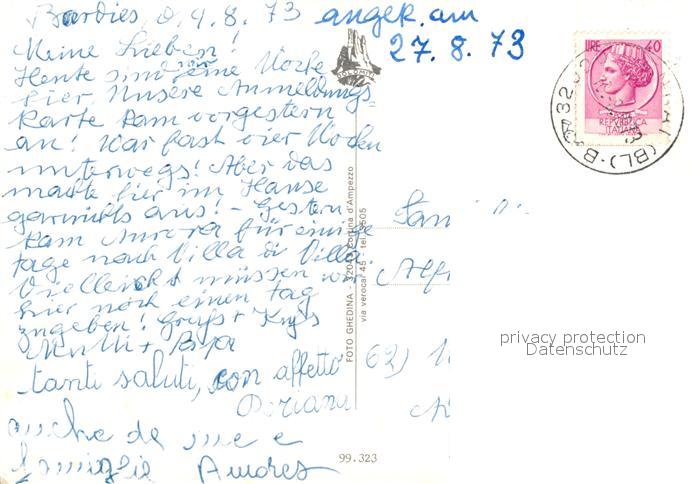 Bardies, d. 9.8.73 angek. am
27.8.73
Meine Lieben!
Heute sind wir eine Woche
hier. Unsere Anmeldungs-
karte kam vorgestern
an! War fast vier Wochen
unterwegs! Aber das
machte hier im Hause
garnichts aus! - Gestern
kam Aurora für einige
tage nach Villa di Villa
Vielleicht müssen wir
hier noch einen Tag
zugeben! Gruß + Kuß
Mutti + Papa
tanti saluti, con affetto
Doriana
anche da me e
famiglia Andres
LIRE 40
REPVBBLICA
ITALIANA
(BL)
FOTO GHEDINA - 32043 Cortina d'Ampezzo
via verocai 45 - tel.
99.323
Fam
62)
privacy protection
Datenschutz